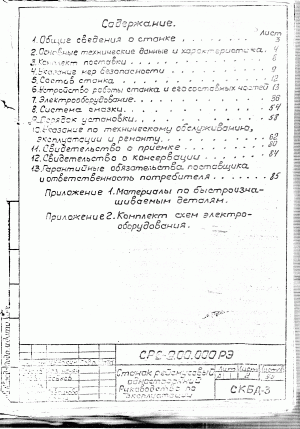 Содержание.
Лист
1. Общие сведения о станке . . . 3
2. Основные технические данные и характеристика. 4
3. Комплект поставки . . . 6
4. Указание мер безопасности . . . 9
5. Состав станка . . . 12
6. Устройство работы станка и его составных частей 13
7. Электрооборудование. . . . 36
8. Система смазки. . . . 54
9. Порядок установки. . . . 58
10. Указание по техническому обслуживанию,
эксплуатации и ремонту. . . . 62
11. Свидетельство о приемке . . . 80
12. Свидетельство о консервации . . . 84
13. Гарантийные обязательства поставщика
и ответственность потребителя . . . 85
Приложение 1. Материалы по быстроизна-
шиваемым деталям.
Приложение 2. Комплект схем электро-
оборудования.
СР6-9.00.000 РЭ
Станок рейсмусовый
односторонний
Руководство по
эксплуатации
Лист
СКБД-3